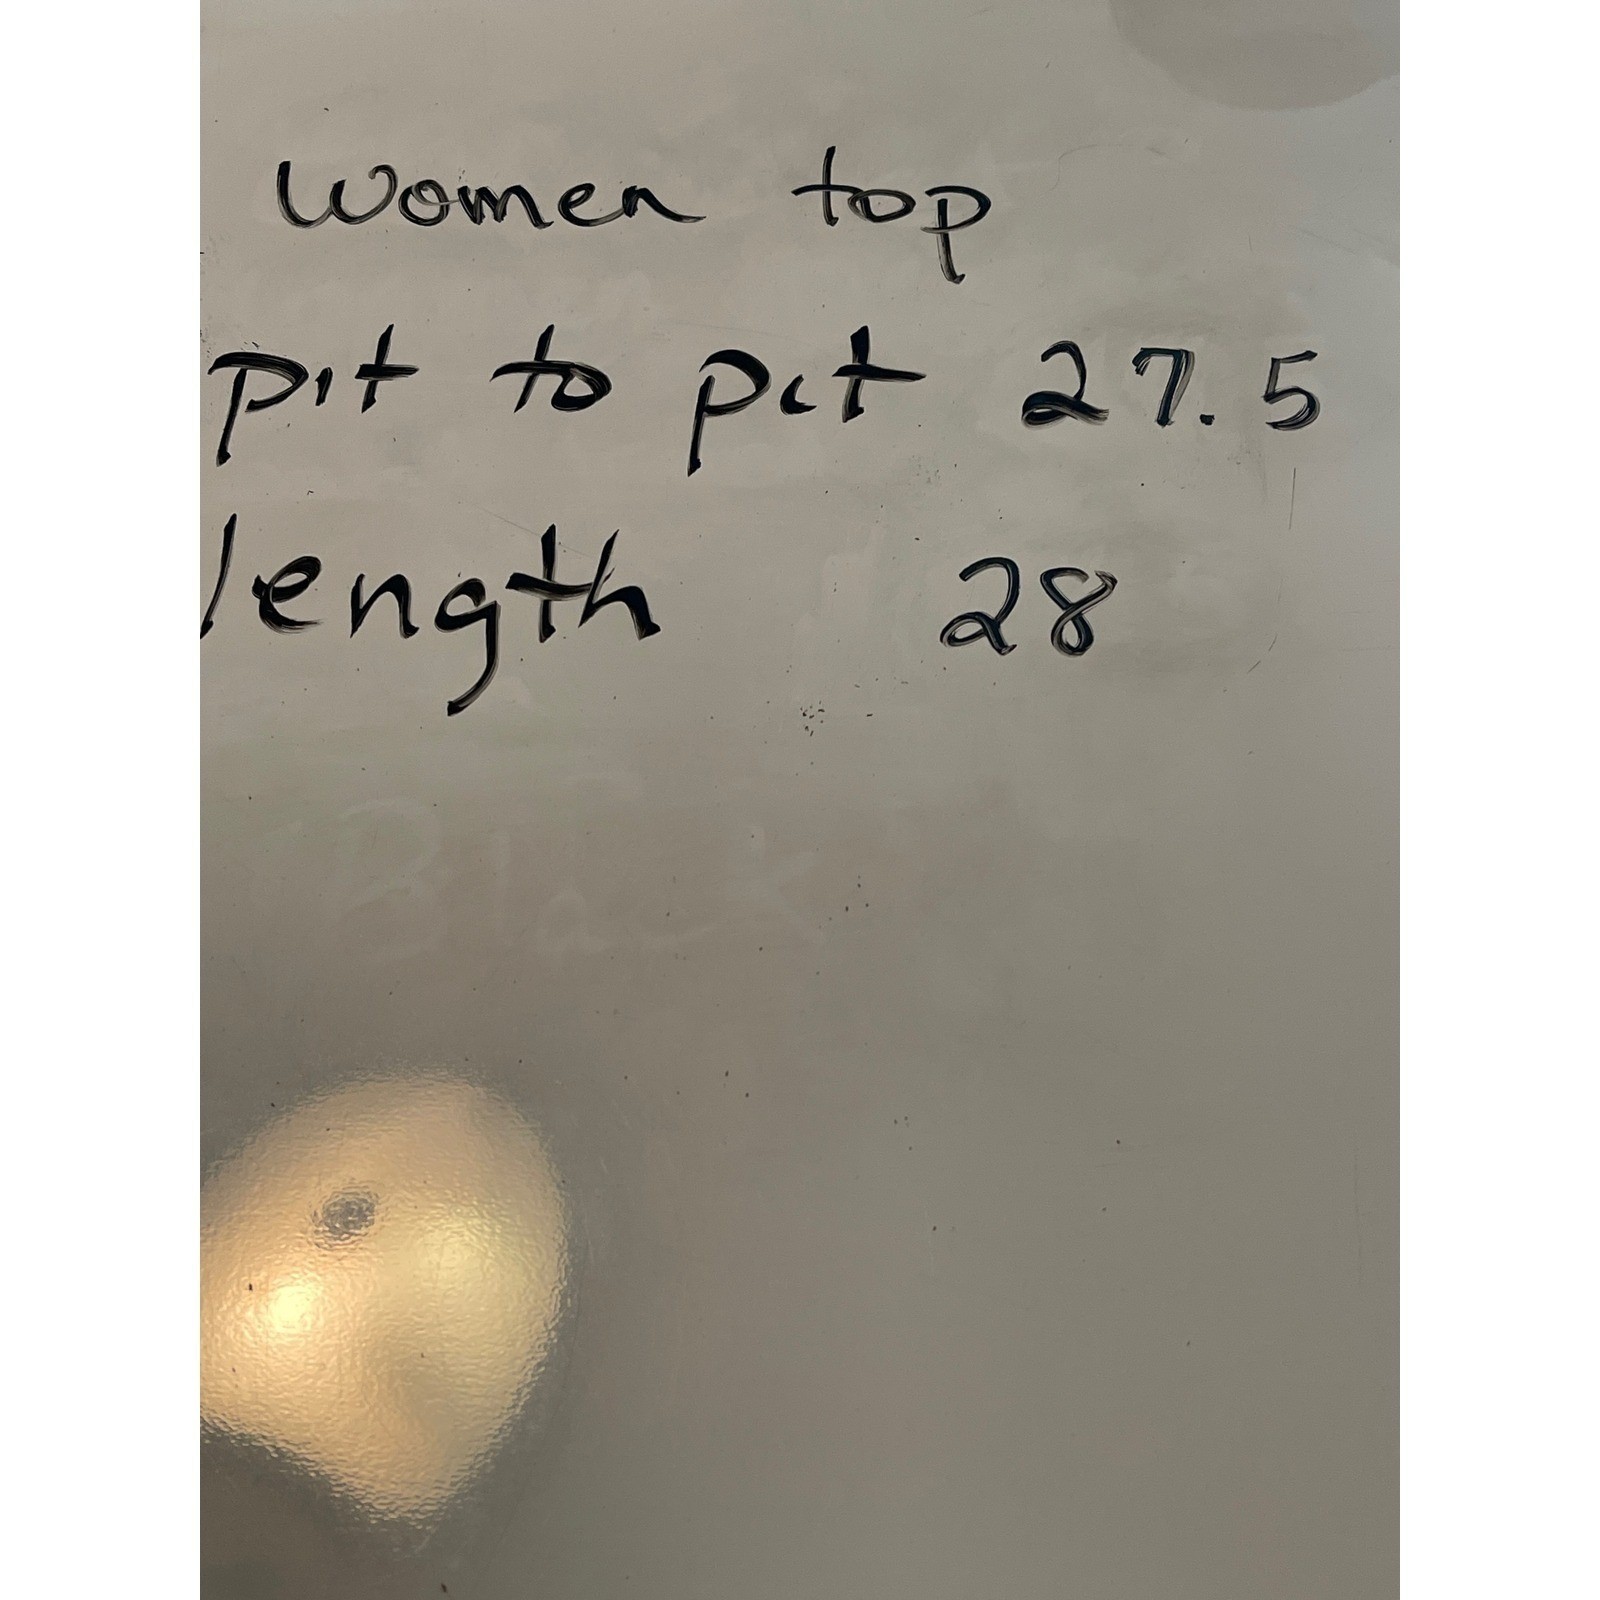 Women top
pit to pit 27.5
length 28
Black